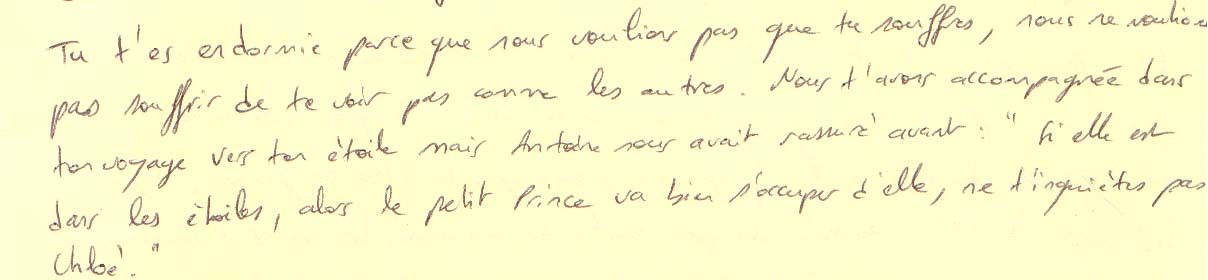 Tu t'es endormie parce que nous voulions pas que tu souffres, nous ne voulions
pas souffrir de te voir pas comme les autres. Nous t'avons accompagnée dans
ton voyage vers ton étoile mais Antoine nous avait rassuré avant : " Si elle est
dans les étoiles, alors le petit Prince va bien s'occuper d'elle, ne t'inquiètes pas
Chloé. "